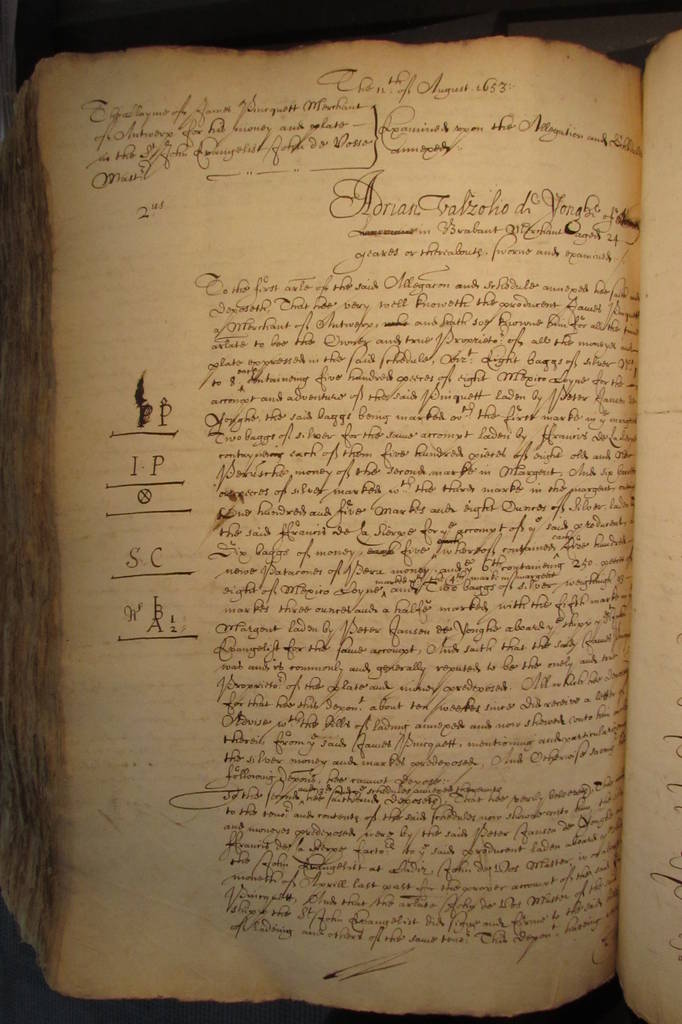 The 11th of August 1653:
The Clayme of James Pincquett Merchant
of Antwerp for his money and plate
in the St John Evangelist John de Vosse
Mastr.
Examined upon the Allegation and
annexed
2us
Adrian de Yonghe of
in Brabant Merchant aged 24
yeares or thereabouts sworne and examined
To the first arle of the said Allegacon and schedule annexed hee saith and
deposeth, That hee very well knoweth the producent James
a Merchant of Antwerp, and hath soe knowne him for all the time
arlate to bee the Owner and true Proprietor of all the moneyes and
plate expressed in the said schedule, vizt. Eight baggs of silver No. 1
to 8 each containeing five hundred peeces of eight Mexico Coyne for the
accompt and adventure of the said Pincquett laden by Peter Jansen de
Yonghe, the said baggs being marked wth the first marke in ye margent
Two baggs of silver for the same accompt laden by Francis de la
contayning each of them five hundred peeces of eight old and new
Perusche money of the second marke in Margent, And six
or peeces of silver marked wth the third marke in the margent,
One hundred and five Markes and eight Ounces of Silver, laden
the said Francis de la Sierpe for ye accompt of ye said producent,
Six baggs of money, five whereof contained each five hundred
newe Patacones of Peru money, and ye 6th containeing 250 peeces
eight of Mexico Coyne
marked wth the 4th marke in margent
and Two baggs of silver, weighing 83
markes three ounces and a halfe marked with the fifth marke in
Margent laden by Peter Jansen de Yonghe aboard ye shipp ye St John
Evangelist for the same accompt, And saith that the said James
was and is commonly and generally reputed to be the onely and true
Proprietor of the plate and money predeposed. All which hee
for that hee this depont about ten weekes since did receive a letter of
Advise wth the bills of lading annexed and now shewed unto him
therein from ye said James Pincquett, mentioning and particularizing
the silver money and markes predeposed, And Otherwise saving
following depons, hee cannot depose:
To the second and schedules annexed
hee saith and deposeth, That hee verily beleeveth, That
to the tenor and contents of the said schedules now shewed unto him, the
and moneyes predeposed were by the said Peter Jansen de Yonghe
Francis de la Sierpe factors to ye said producent laden aboard
the St John Evangelist at Cadiz, John de Vos Master, in
moneth of Aprill last past for the proper account of the said
Pincquett And that the arlate John de Vos Master of the said
shipp the St John Evangelist did signe and firme to the said
of ladeing and others of the same tenor. This depont having
P P
I · P
S. C
No
B
A ½